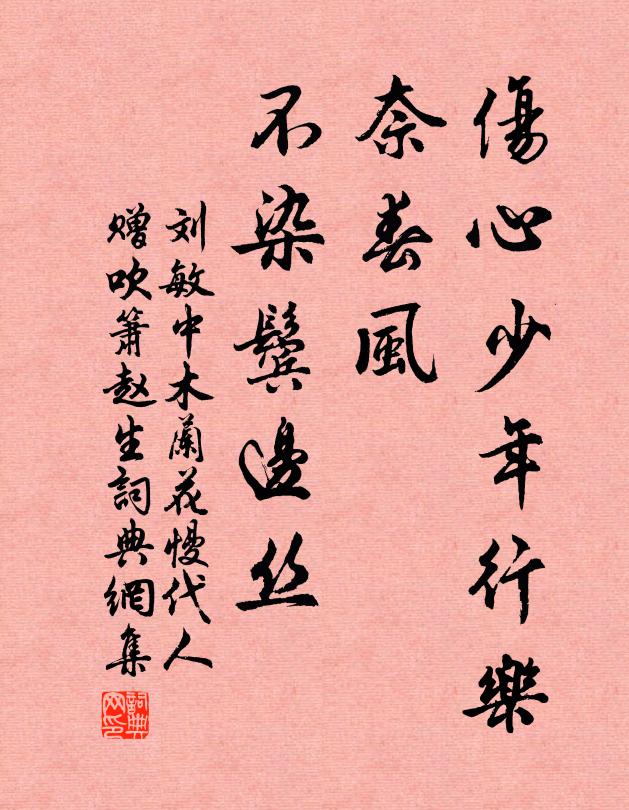 傷心少年行樂
奈春風
不染鬢邊丝
刘敏中木蘭花慢代人
赠吹簫赵生詞典網集
詞典网印